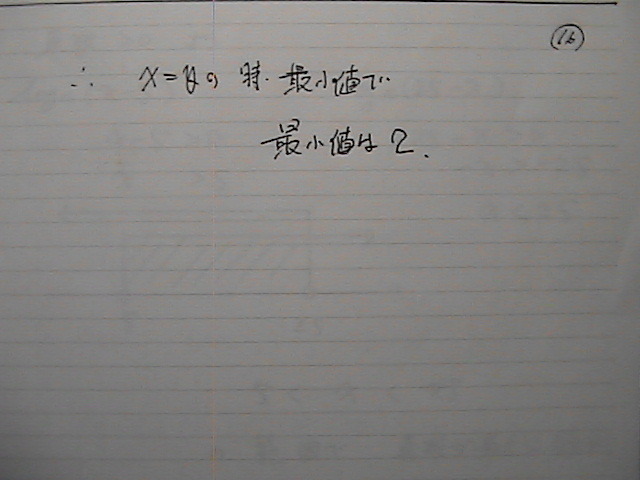 ⑯
∴ x=yの時 最小値で
最小値は2.